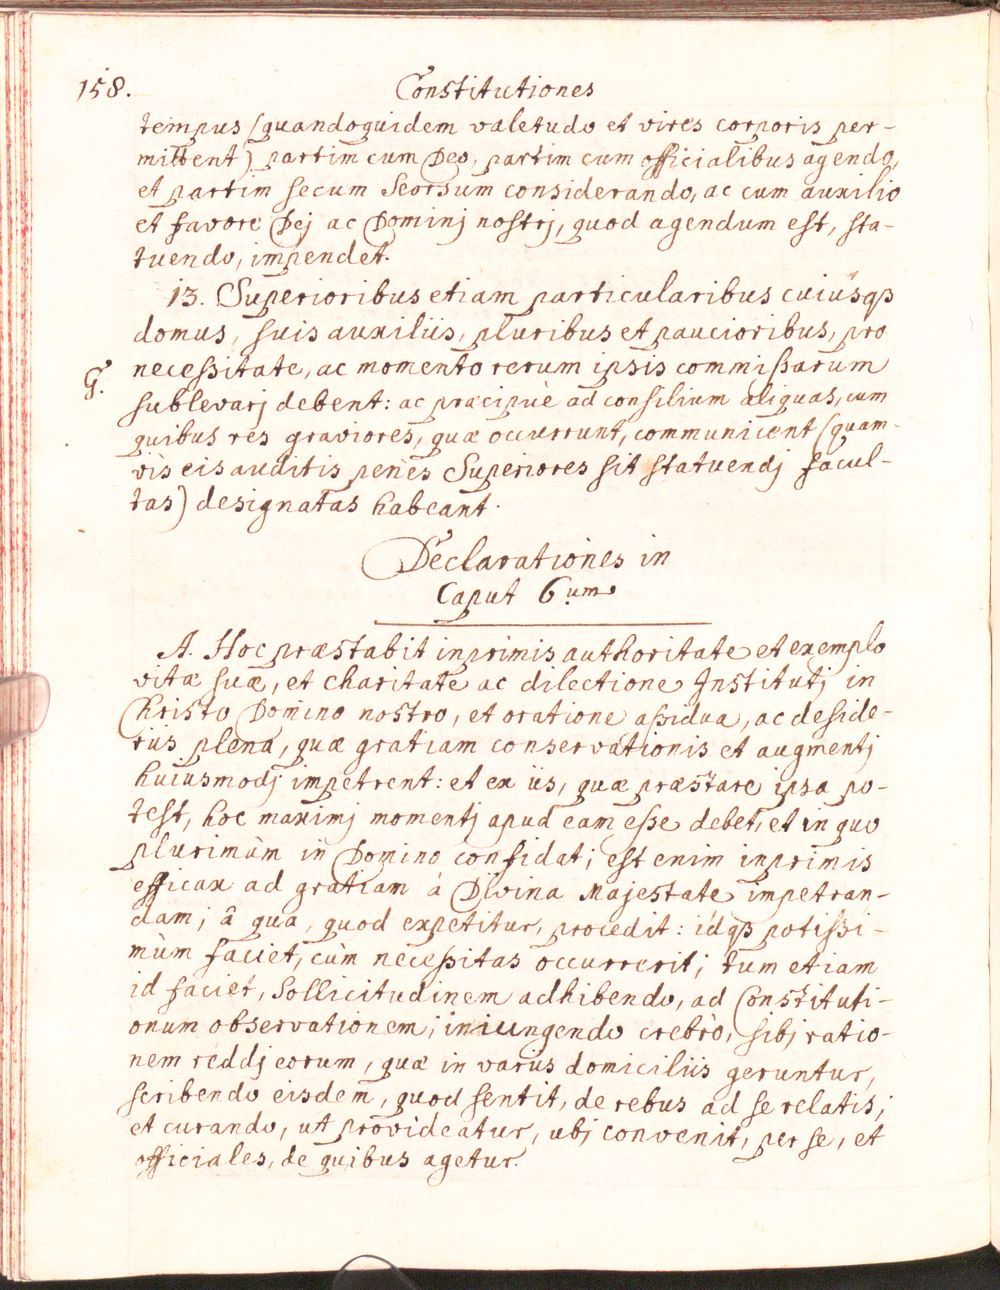 158. Constitutiones
tempus (quandoquidem valetudo et vires corporis per-
mittent) partim cum Deo, partim cum officialibus agendo,
et partim secum seorsum considerando, ac cum auxilio
et favore Dej ac Dominj nostrj, quod agendum est, sta-
tuendo, impendet.
13. Superioribus etiam particularibus cuiúsqȝ
domus, suis auxiliis, pluribus et paucioribus, pro
necessitate, ac momento rerum ipsis commissarum
G.
sublevarj debent: ac præcipuè ad consilium aliquas, cum
quibus res graviores, quæ occurrunt, communicent (quam-
vis eis auditis penès Superiores sit statuendj facul-
tas) designatas habeant.
Declarationes in
Caput 6.um
A. Hoc præstabit inprimis authoritate et exemplo
vitæ suæ, et charitate ac dilectione Institutj in
Christo Domino nostro, et oratione assidua, ac deside-
riis plena, quæ gratiam conservationis et augmentj
huiusmodj impetrent: et ex iis, quæ præstare ipsa po-
test, hoc maximj momentj apud eam esse debet, et in quo
plurimùm in Domino confidat; est enim inprimis
efficax ad gratiam á Divina Majestate impetran-
dam; â qua, quod expetitur, procedit: idqȝ potissi-
mùm faciet, cùm necessitas occurrerit; tum etiam
id faciet, sollicitudinem adhibendo, ad Constituti-
onum observationem; iniungendo crebrò, sibj ratio-
nem reddj eorum, quæ in variis domiciliis geruntur,
scribendo eisdem, quod sentit, de rebus ad se relatis;
et curando, ut provideatur, ubj convenit, per se, et
officiales, de quibus agetur.